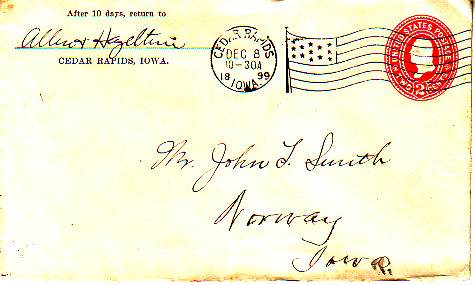 After 10 days, return to
Allison Hazeltine
CEDAR RAPIDS, IOWA.
CEDAR RAPIDS
DEC 8
10-30A
18 99
IOWA
UNITED STATES POSTAGE
2
Mr. John T. Smith
Norway
Iowa